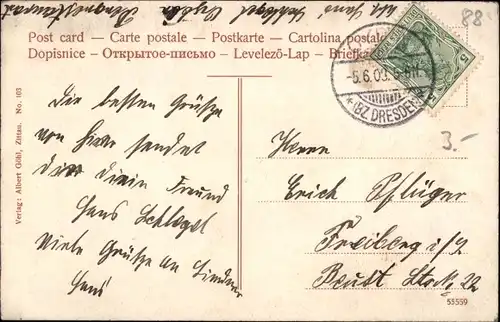 88
Post card — Carte postale — Postkarte — Cartolina postale
Dopisnice — Открытое-письмо — Levelező-Lap — Briefka
5
-5.6.09. 5-6N.
* (BZ. DRESDEN) *
3.-
Verlag: Albert Göhl, Zittau. No. 103
Die besten Grüße
von hier sendet
dir dein Freund
Hans Schlegel
Viele Grüße an
Hans
Herrn
Erich Pflüger
Freiberg i/S.
53559